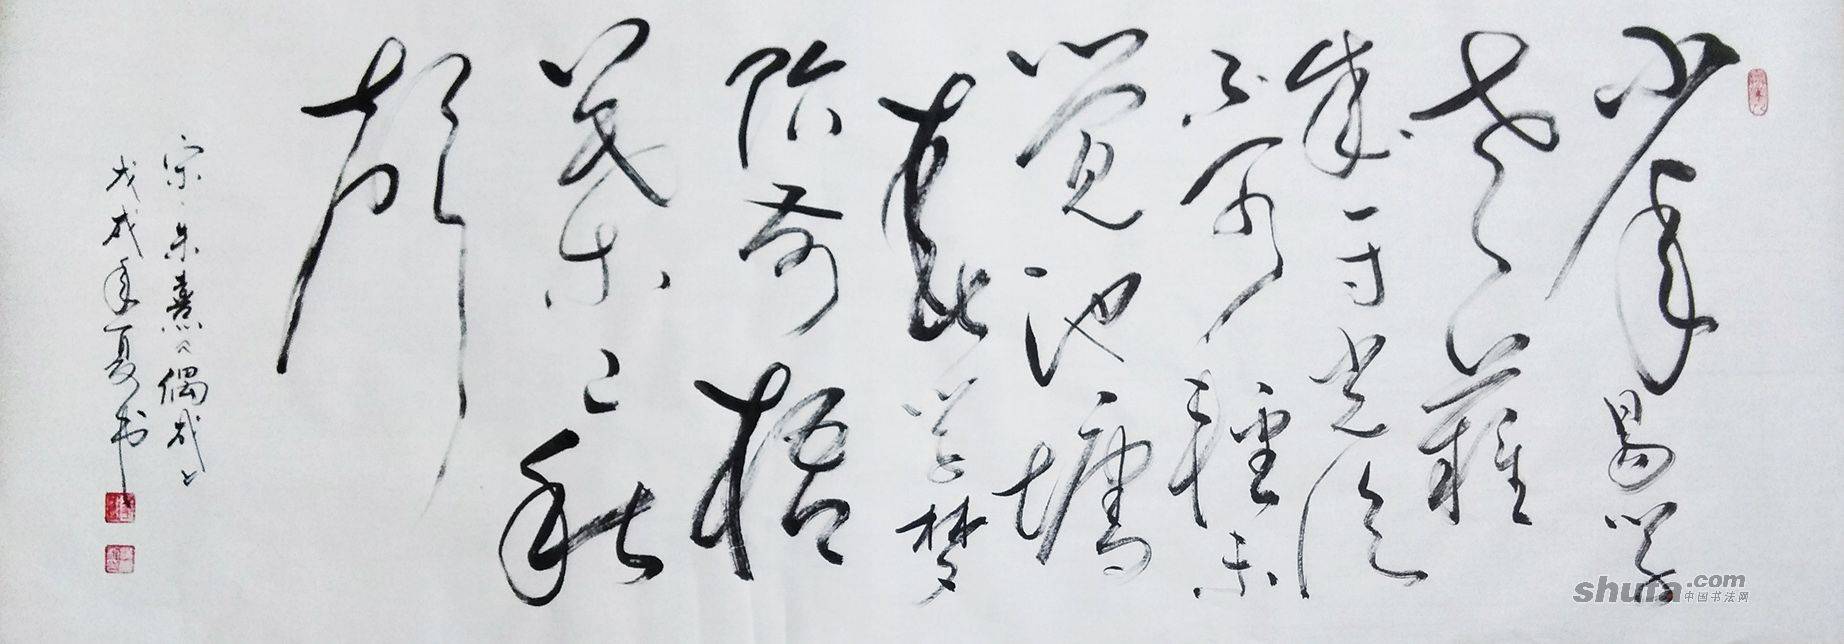 少年易学
老難
成一寸光陰
不可輕未
觉池塘
春草梦
阶前梧
葉已秋
聲
宋·朱熹《偶成》
戊戌年夏书
shufa.com
中国书法网